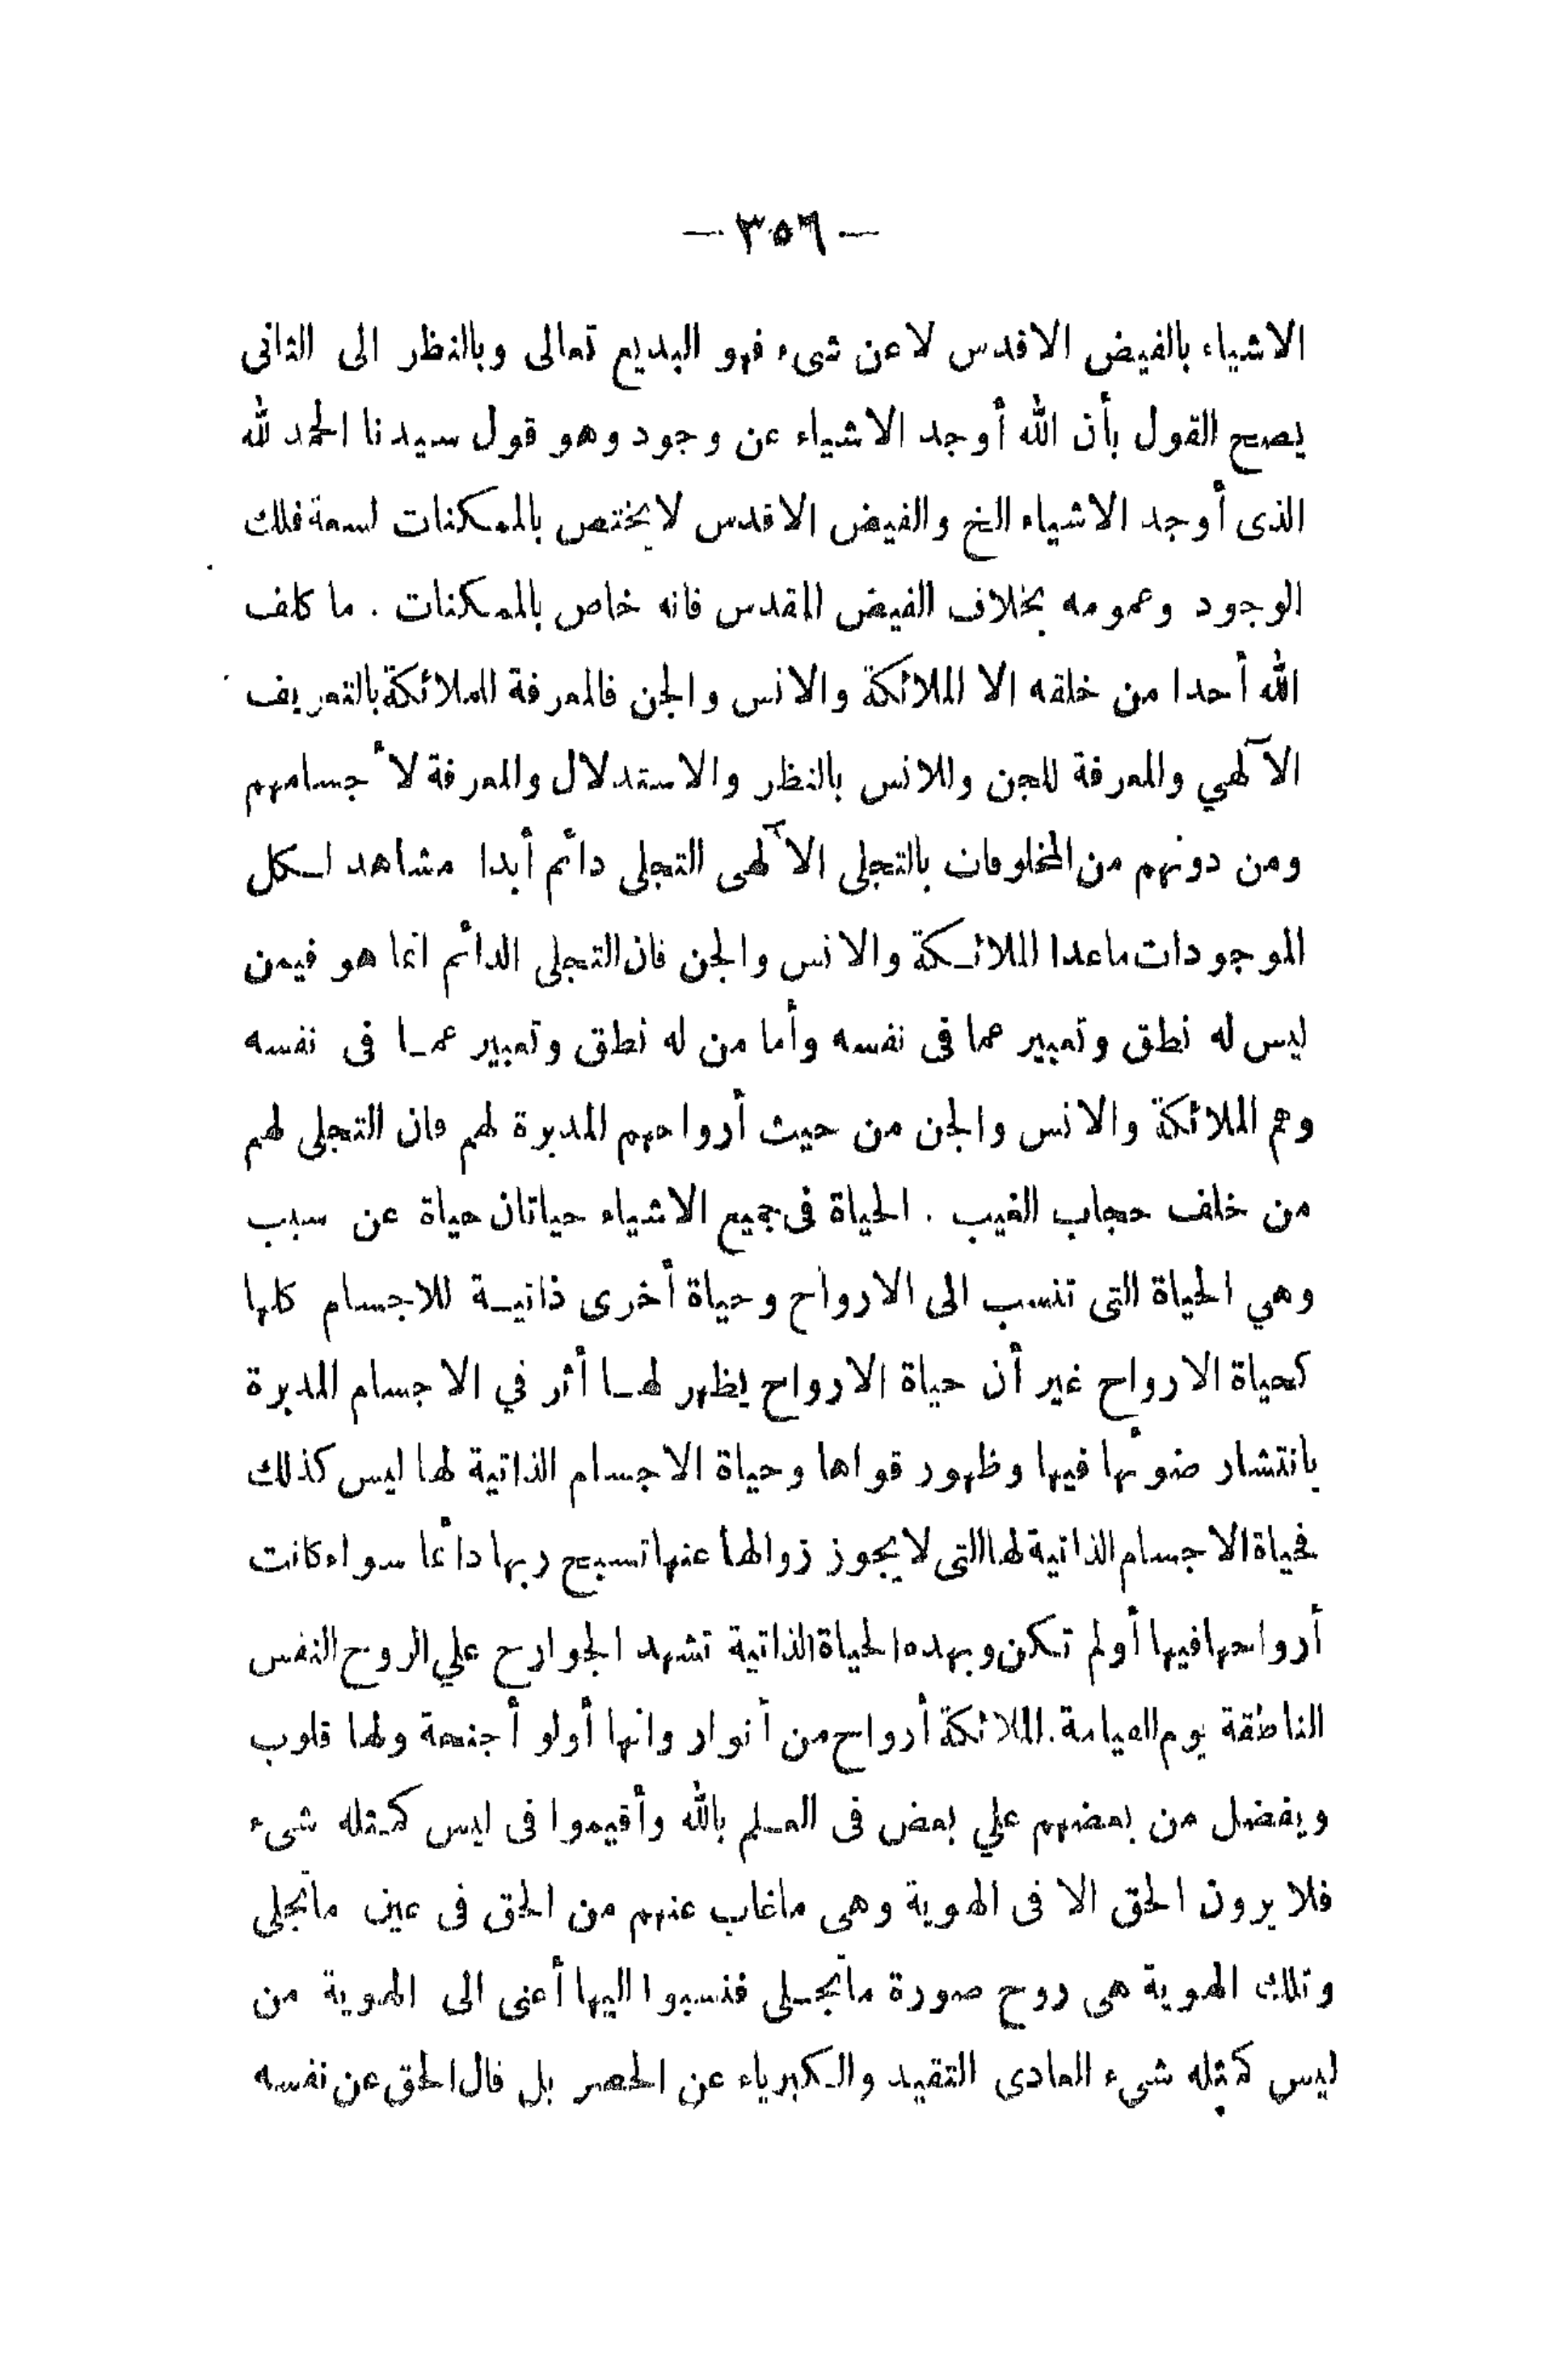 — ٣٥٦ —
الاشياء بالفيض الاقدس لا عن شىء فهو البديع تعالى وبالنظر الى الثانى
يصح القول بأن الله أوجد الاشياء عن وجود وهو قول سيدنا الحمد لله
الذى أوجد الاشياء الخ والفيض الاقدس لا يختص بالممكنات لسعة فلك
الوجود وعمومه بخلاف الفيض المقدس فانه خاص بالممكنات . ما كلف
الله أحدا من خلقه الا الملائكة والانس والجن فالمعرفة للملائكة بالتعريف
الآلهي والمعرفة للجن وللانس بالنظر والاستدلال والمعرفة لأجسامهم
ومن دونهم من المخلوقات بالتجلى الآلهى التجلى دائم أبدا مشاهد لكل
الموجودات ماعدا الملائكة والانس والجن فان التجلى الدائم انما هو فيمن
ليس له نطق وتعبير عما فى نفسه وأما من له نطق وتعبير عما فى نفسه
وهم الملائكة والانس والجن من حيث أرواحهم المدبرة لهم فان التجلى لهم
من خلف حجاب الغيب . الحياة فى جميع الاشياء حياتان حياة عن سبب
وهي الحياة التى تنسب الى الارواح وحياة أخرى ذاتية للاجسام كلها
كحياة الارواح غير أن حياة الارواح يظهر لها أثر في الاجسام المدبرة
بانتشار ضوئها فيها وظهور قواها وحياة الاجسام الذاتية لها ليس كذلك
فحياة الاجسام الذاتية لها التى لا يجوز زوالها عنها تسبح ربها دائما سواء كانت
أرواحها فيها أولم تكن وبهده الحياة الذاتية تشهد الجوارح علي الروح النفس
الناطقة يوم القيامة. الملائكة أرواح من أنوار وانها أولو أجنحة ولها قلوب
ويفضل من بعضهم علي بعض فى العلم بالله وأقيموا فى ليس كمثله شىء
فلا يرون الحق الا فى الهوية وهى ماغاب عنهم من الحق فى عين ماتجلى
وتلك الهوية هى روح صورة ماتجلى فنسبوا اليها أعنى الى الهوية من
ليس كمثله شىء العادى التقيد والكبرياء عن الحصر بل قال الحق عن نفسه